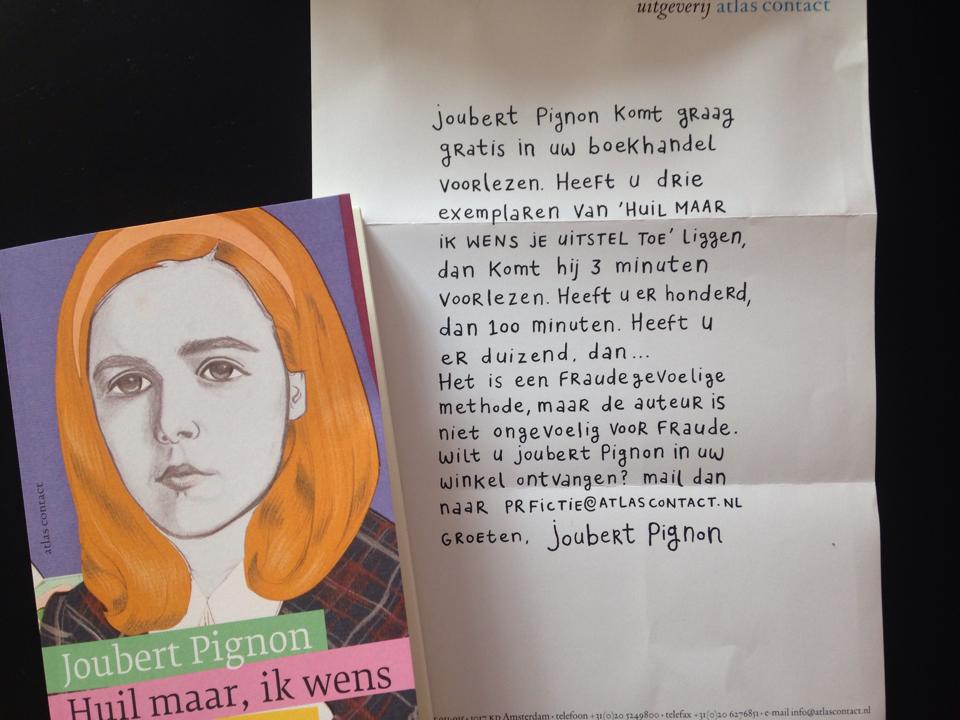 uitgeverij atlas contact
Joubert Pignon komt graag
gratis in uw boekhandel
voorlezen. Heeft u drie
exemplaren van 'Huil maar
ik wens je uitstel toe' liggen,
dan komt hij 3 minuten
voorlezen. Heeft u er honderd,
dan 100 minuten. Heeft u
er duizend, dan...
Het is een fraudegevoelige
methode, maar de auteur is
niet ongevoelig voor fraude.
Wilt u Joubert Pignon in uw
winkel ontvangen? mail dan
naar PRFICTIE@ATLASCONTACT.NL
Groeten, Joubert Pignon
Amsterdam • telefoon +31(0)20 5249800 • telefax +31(0)20 6276851 • e-mail info@atlascontact.nl
atlas contact
Joubert Pignon
Huil maar, ik wens